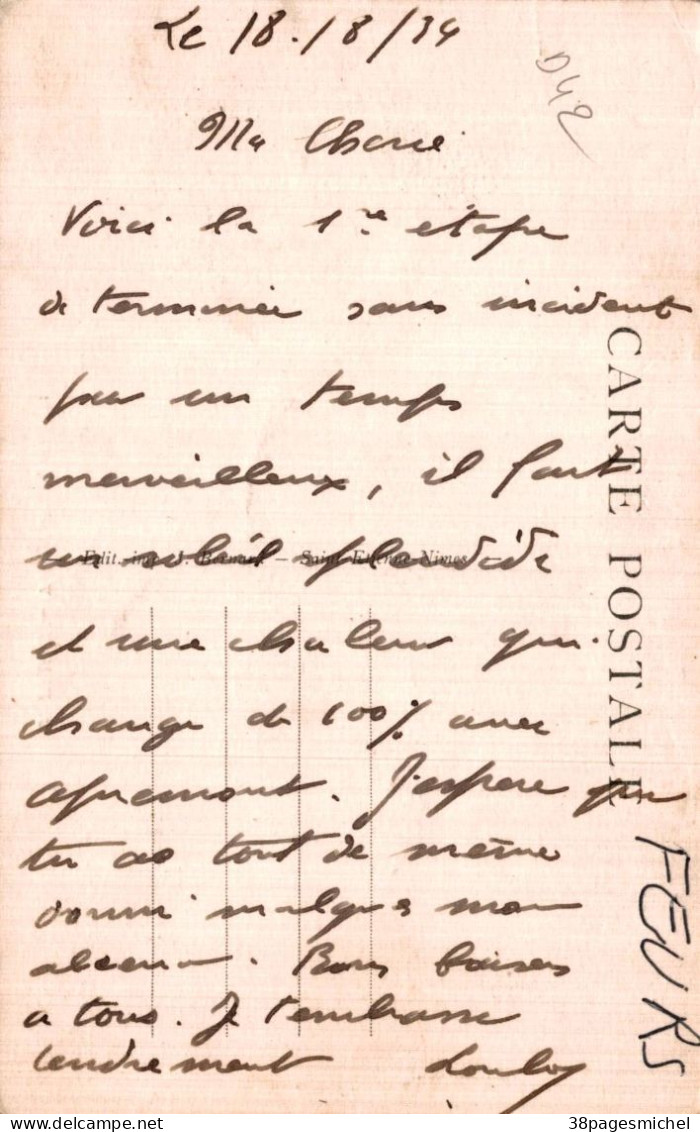 Le 18/8/34
D42
Ma Cherie
Voici la 1re etape
de terminée sans incident
par un temps
merveilleux, il fait
un soleil splendide
Edit. imp. - Saint-Etienne-Nimes
et une chaleur qui
change de 100% avec
apremont. J'espere que
tu as tout de même
dormi malgré mon
absence. Bons baisers
a tous. Je t'embrasse
tendrement
CARTE POSTALE
FEURS
38pagesmichel